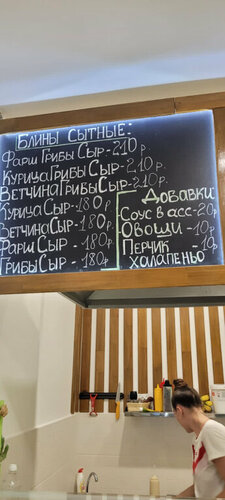 Блины сытные:
Фарш Грибы Сыр - 210 р.
Курица Грибы Сыр - 210 р.
Ветчина Грибы Сыр - 210 р.
Курица Сыр - 180 р.
Ветчина Сыр - 180 р.
Фарш Сыр - 180 р.
Грибы Сыр - 180 р
Добавки
Соус в асс - 20 р
Овощи - 10 р
Перчик - 10 р
халапеньо